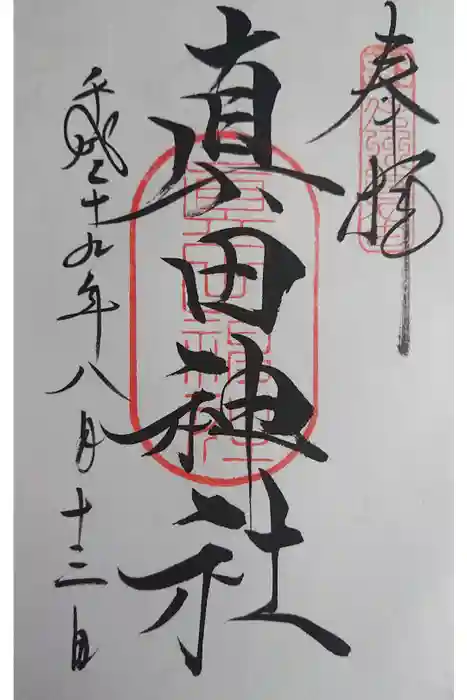 奉拝
真田神社
平成二十九年八月十三日